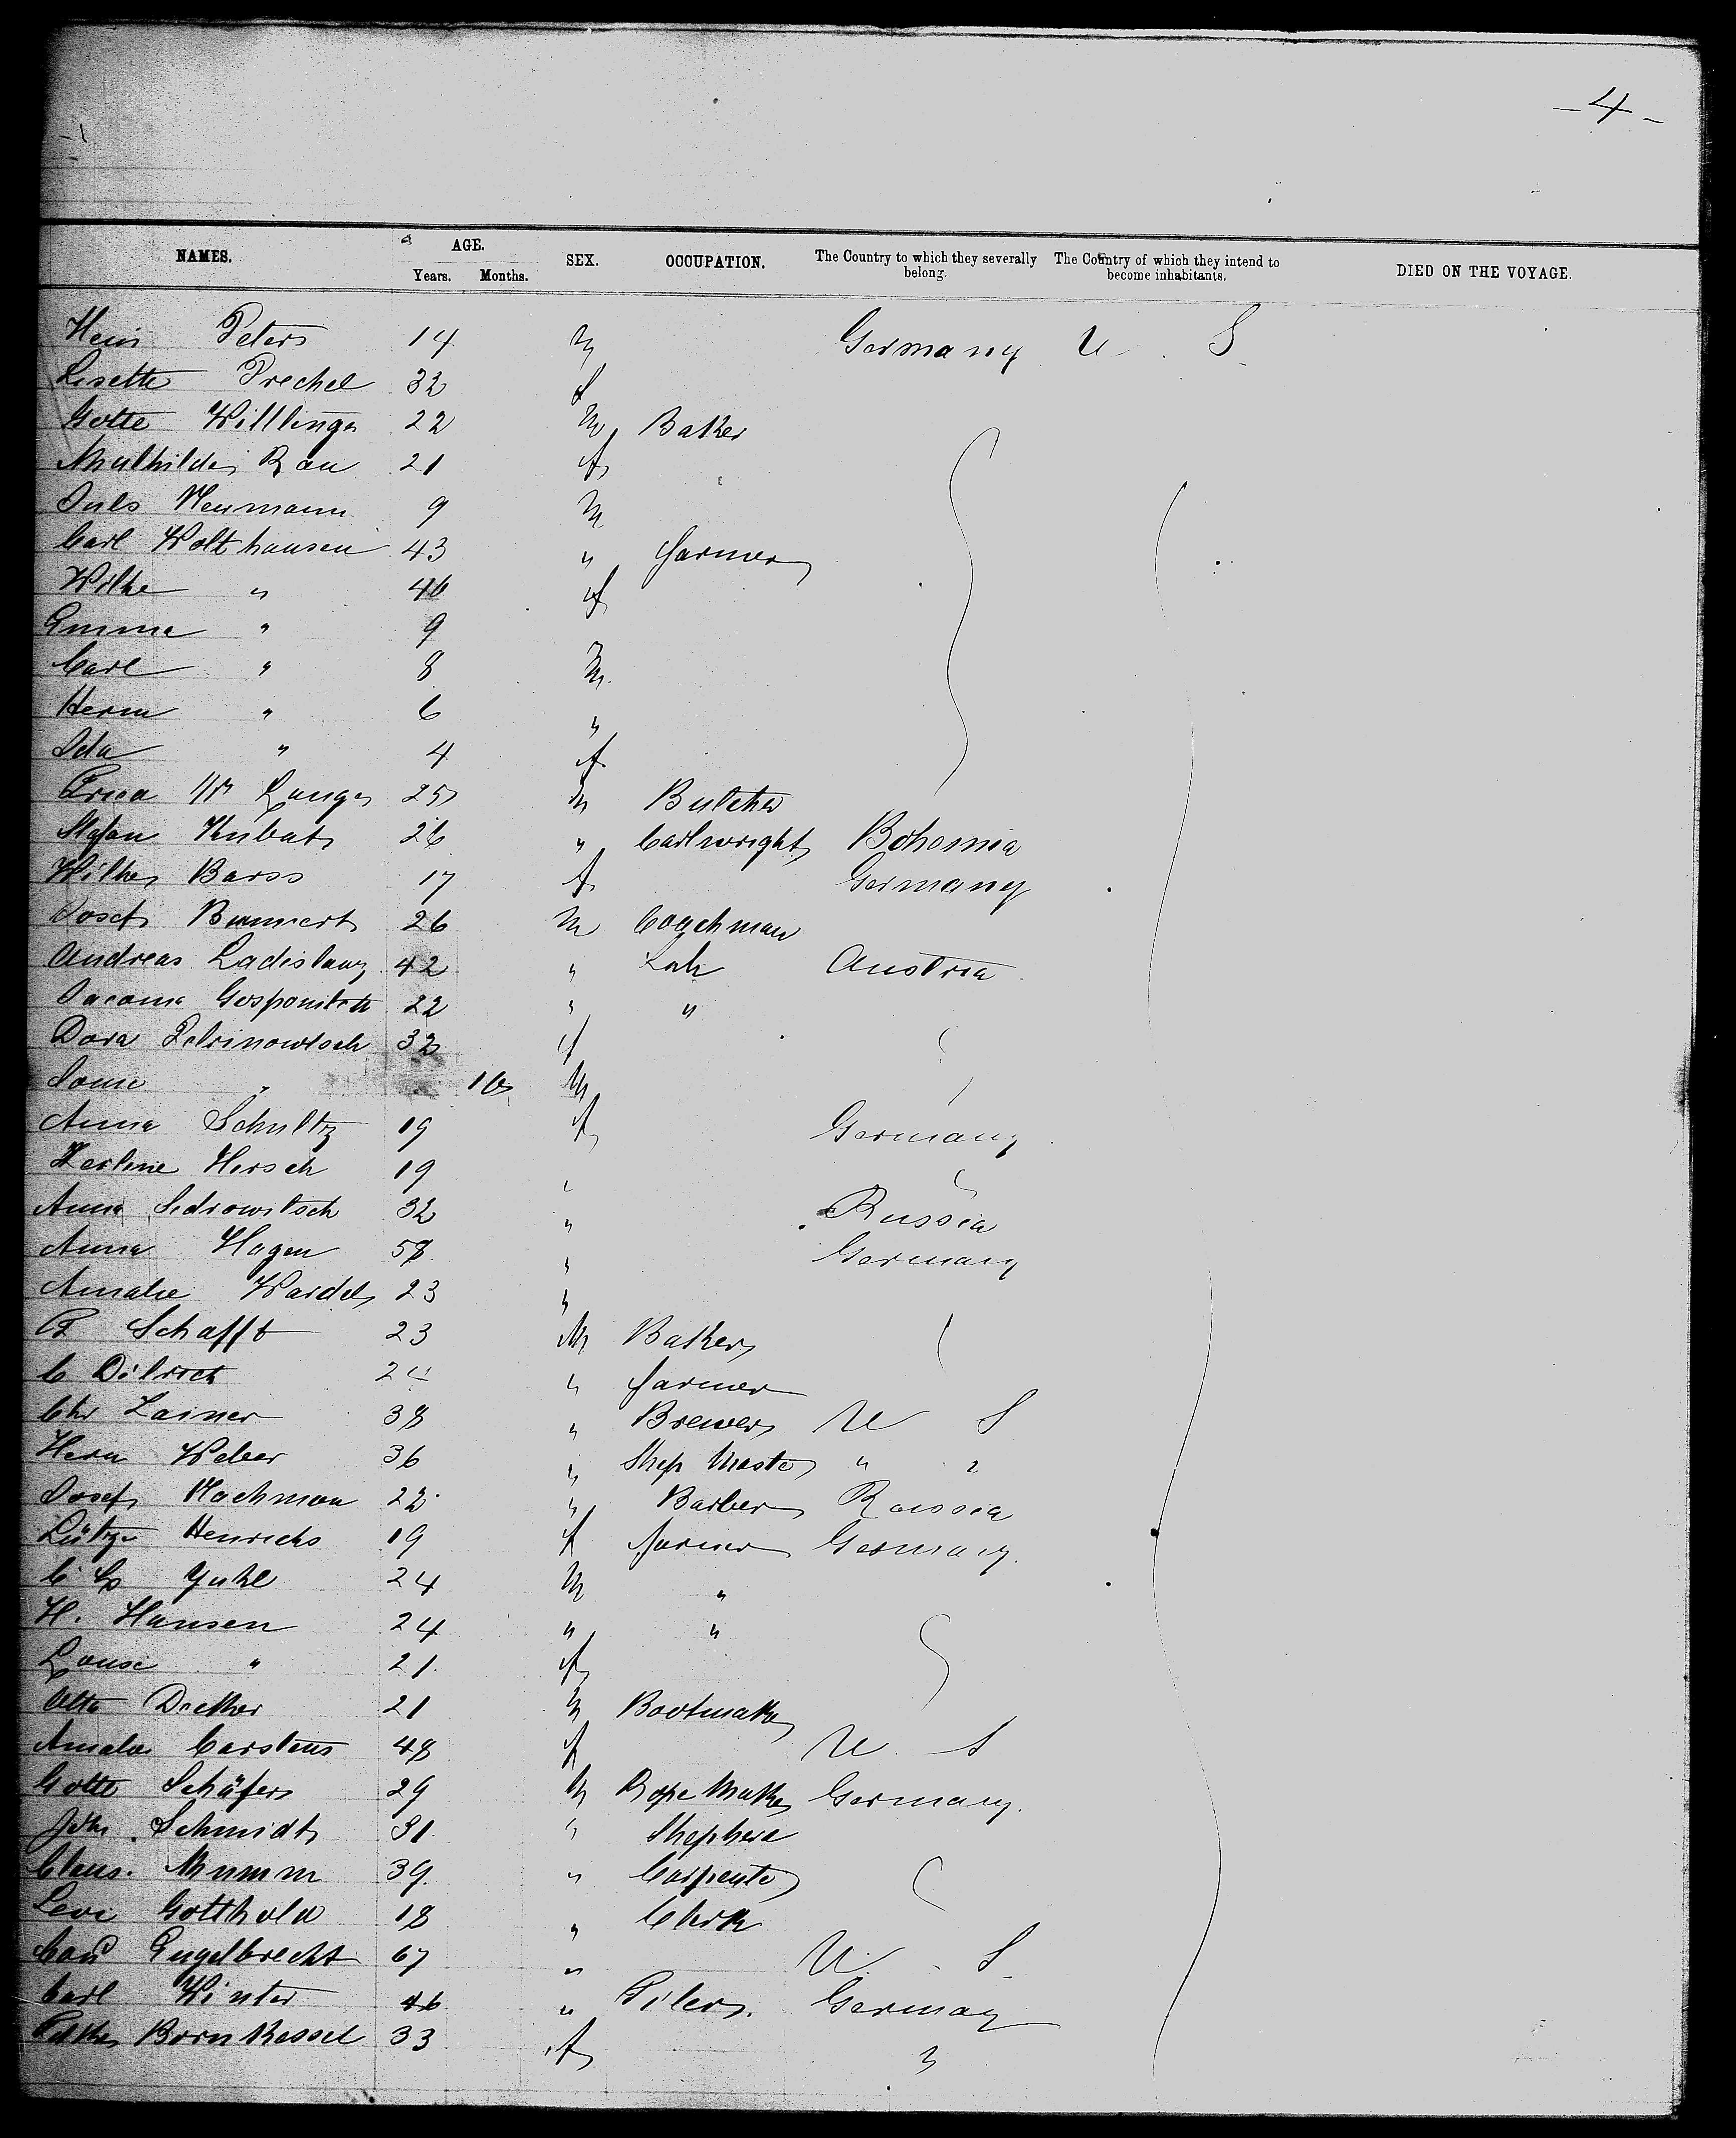 - 4 -
NAMES. AGE. Years. Months. SEX. OCCUPATION. The Country to which they severally belong. The Country of which they intend to become inhabitants. DIED ON THE VOYAGE.
Hein Peters 14 M Germany U. S.
Lisette Prechel 32 f
Gotte Willlinger 22 M Baker
Mathilde Rau 21 f
Juls Neumann 9 M
Carl Wolthausen 43 " farmer
Wilhe " 46 f
Emma " 9
Carl " 8 M
Herm " 6 "
Ida " 4 f
Lange 25 M Butcher
Stefan Kubat 26 " Cartwright Bohemia
Wilhe Barss 17 f Germany
Josef Bummert 26 M Coachman
Andreas Ladislaus 42 " Lab Austria
22 " "
Dora Petrinowtsch 32 f
" 10 M
Anna Schultz 19 f Germany
Hersch 19 "
Anna 32 " Russia
Anna Hagen 58 " Germany
Amalie Wardel 23 "
Schafft 23 M Baker
C Ditrich 24 " farmer
Chr Lainer 38 " Brewer U S
Herm Weber 36 " Ship Master " "
Josef Nachman 22 " Barber Russia
Lütze Henrichs 19 f farmer Germany
Juhl 24 M "
H. Hansen 24 " "
Louse " 21 f
Otto Decker 21 M Bootmaker
Amalie Carstens 48 f U. S
Gotte Schäfer 29 M Rope Maker Germany.
Joh. Schmidt 31 " Shepherd
Claus. Mumm 39. " Carpenter
Levi Gotthold 18 " Clerk
Engelbrecht 67 " U. S.
Carl Winter 46 " Tiler. Germay
Born Kessel 33 f "